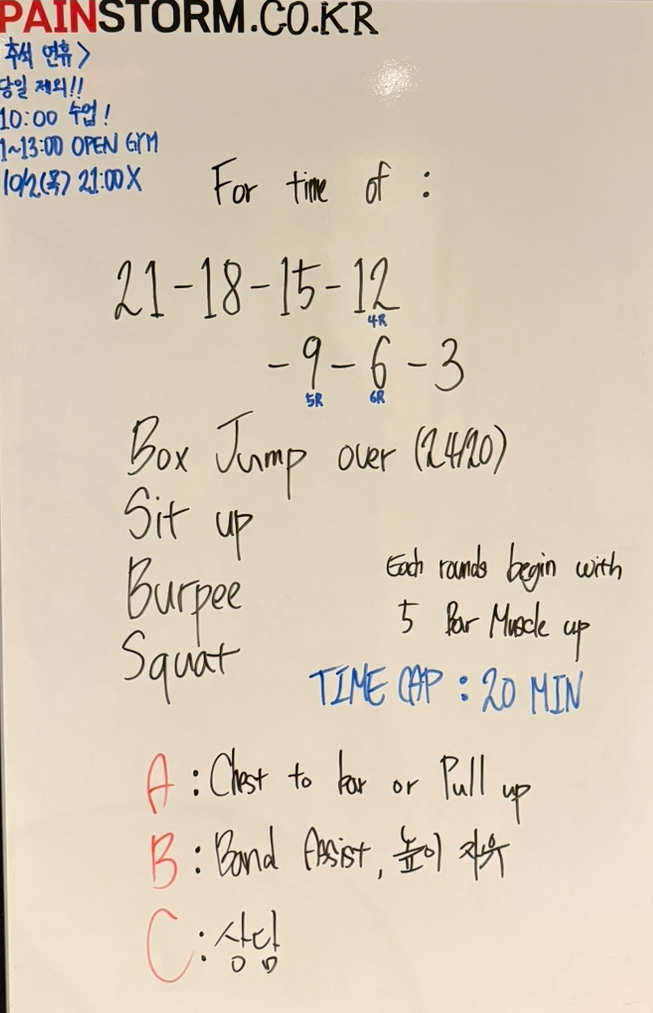 PAINSTORM.CO.KR
추석 연휴>
당일 제외!!
10:00 수업!
1~13:00 OPEN GYM
10/2(목) 21:00 X
For time of :
21-18-15-12
4R
-9-6-3
5R 6R
Box Jump over (24/20)
Sit up
Burpee
Squat
Each rounds begin with
5 Bar Muscle up
TIME CAP : 20 MIN
A : Chest to bar or Pull up
B : Band Assist, 높이 자유
C : 상담